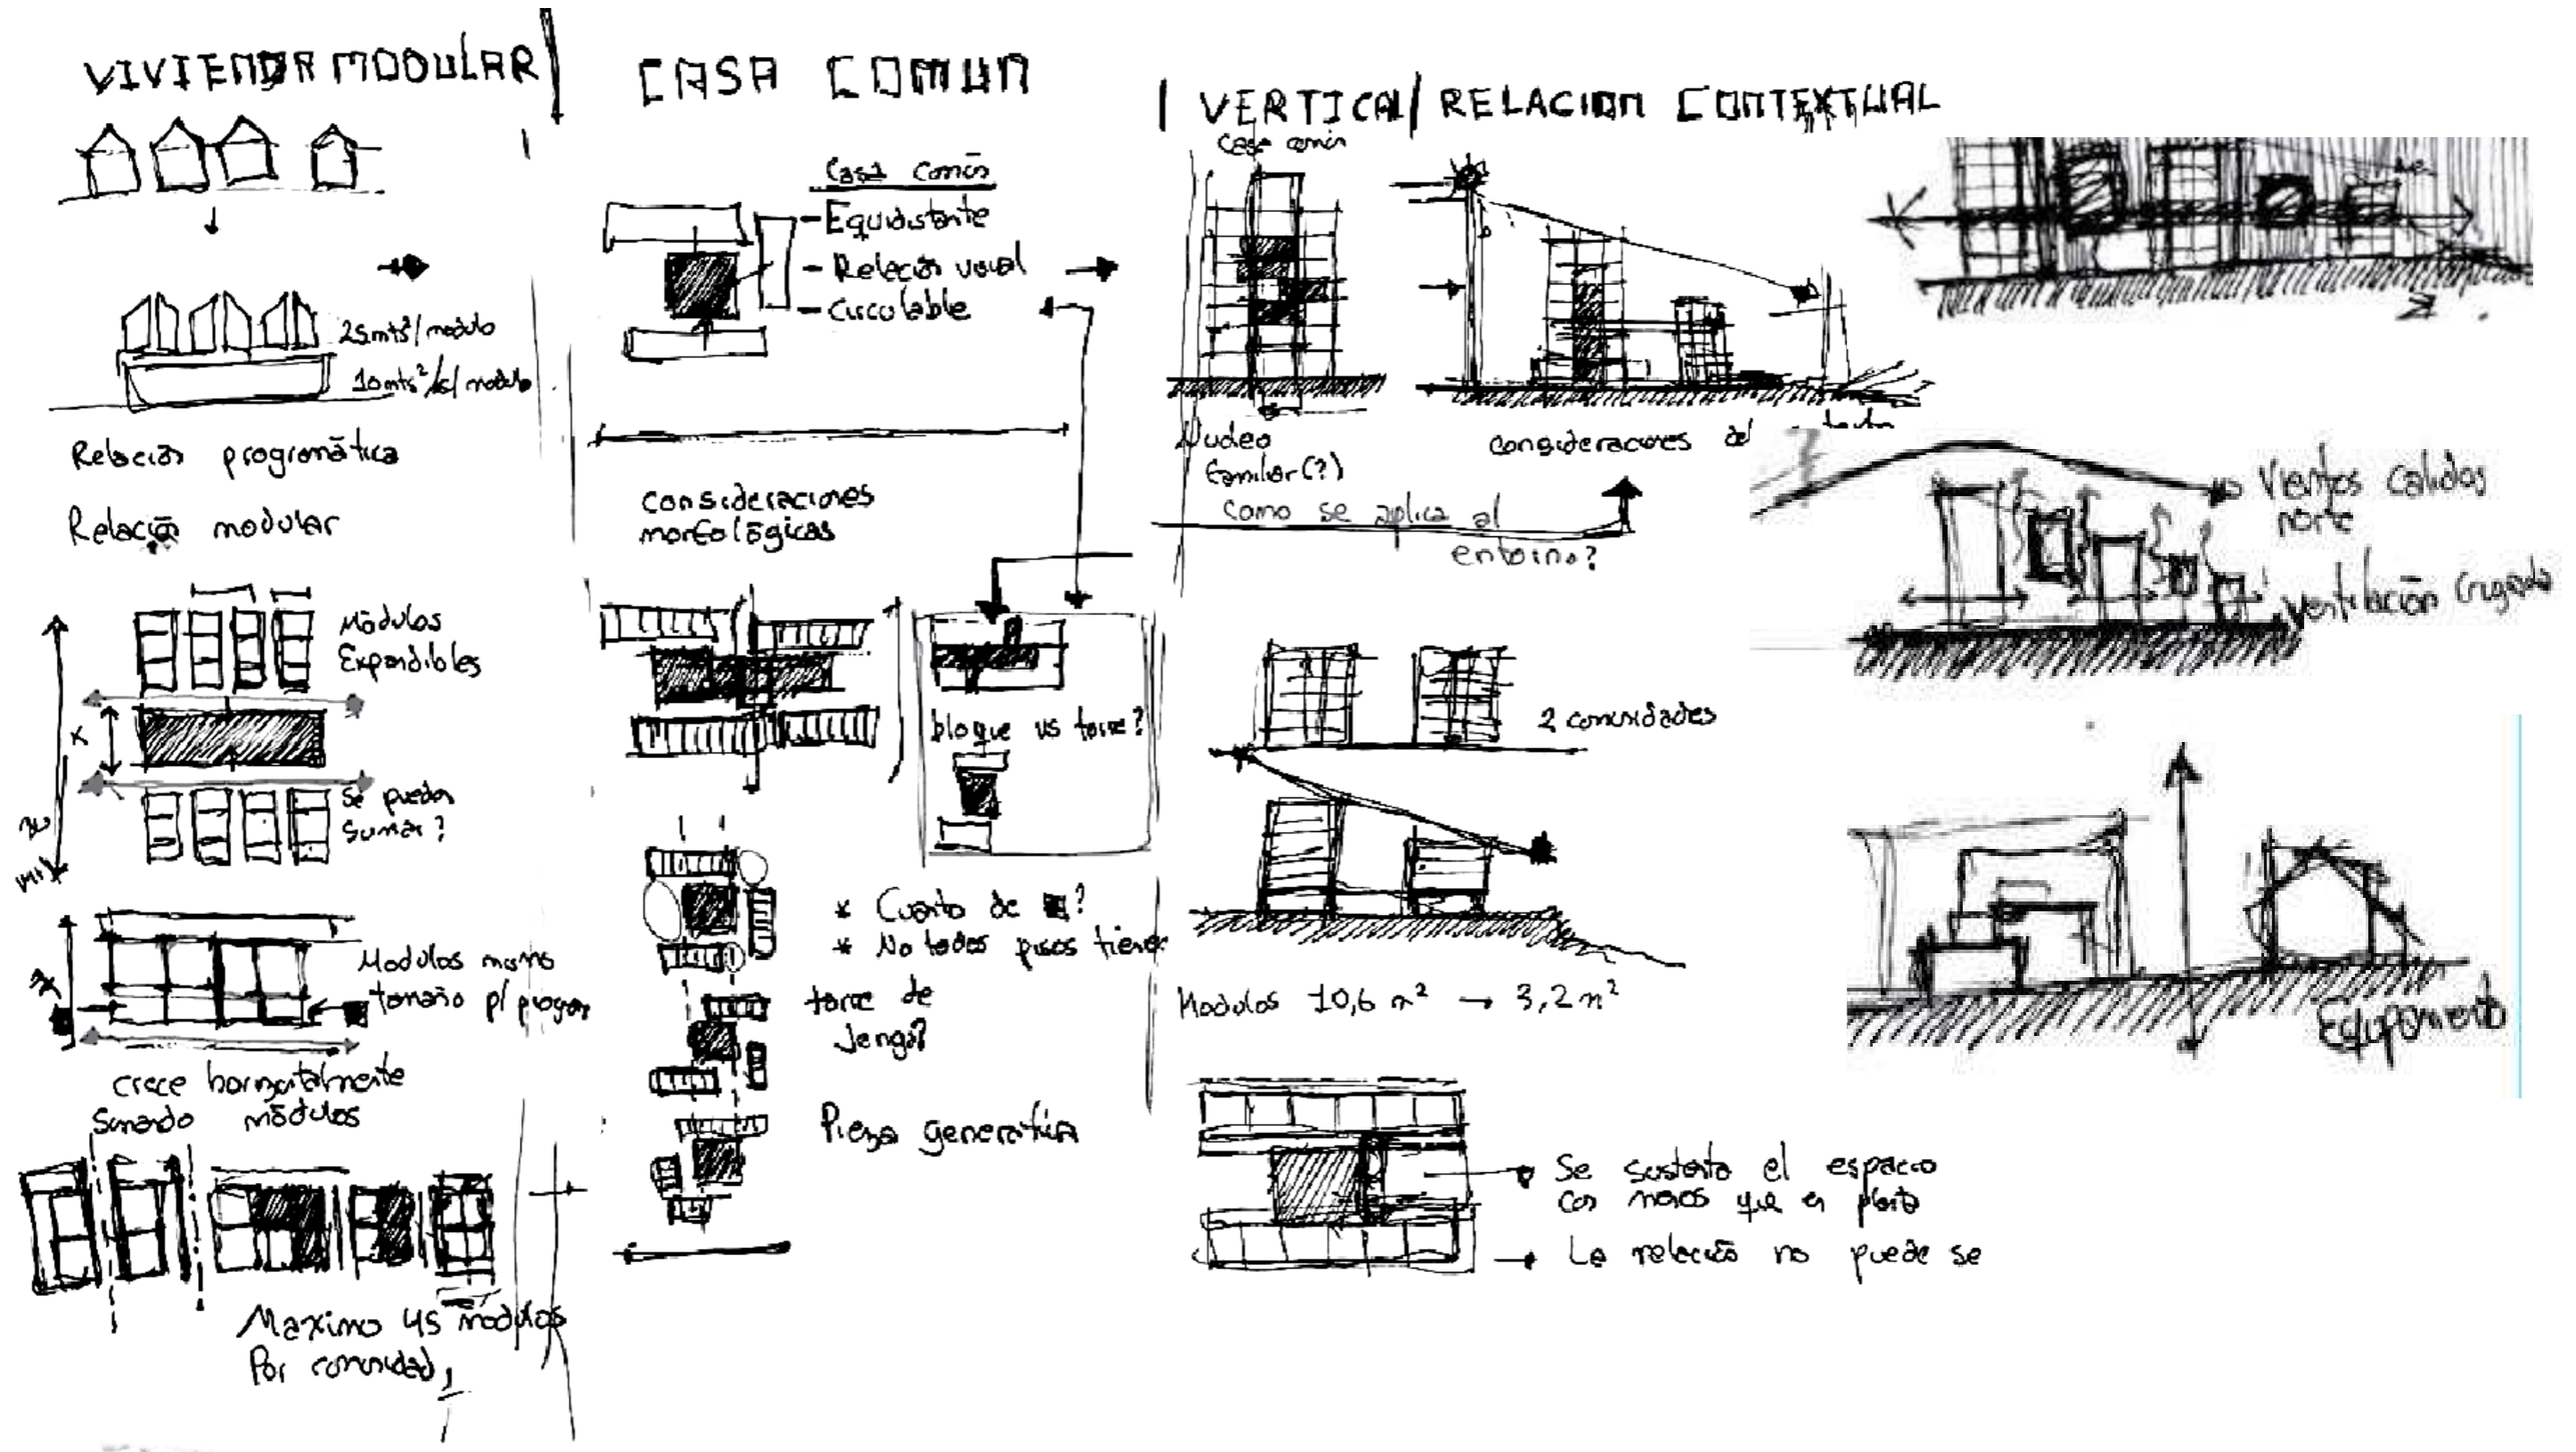 VIVIENDA MODULAR
25mts²/modulo
10mts²/c/modulo
Relación programática
Relación modular
Módulos
Expandibles
x
Se pueden
Sumar?
3x
Modulos mismo
tamaño p/ program
crece horizontalmente
Sumando módulos
Maximo 45 modulos
Por comunidad
CASA COMUN
Casa común
- Equidistante
- Relación visual
- Circulable
consideraciones
morfológicas
bloque vs torre?
* Cuanto de ?
* No todos pisos tienen
torre de
Jenga?
Pieza generativa
VERTICAL/RELACION CONTEXTUAL
Casa común
Nucleo
familiar(?)
consideraciones del
Como se aplica al
entorno?
2 comunidades
Modulos 10,6 m² → 3,2 m²
Se sustenta el espacio
con menos que en planta
La relación no puede se
Vientos calidos
norte
ventilación cruzada
Equipamento